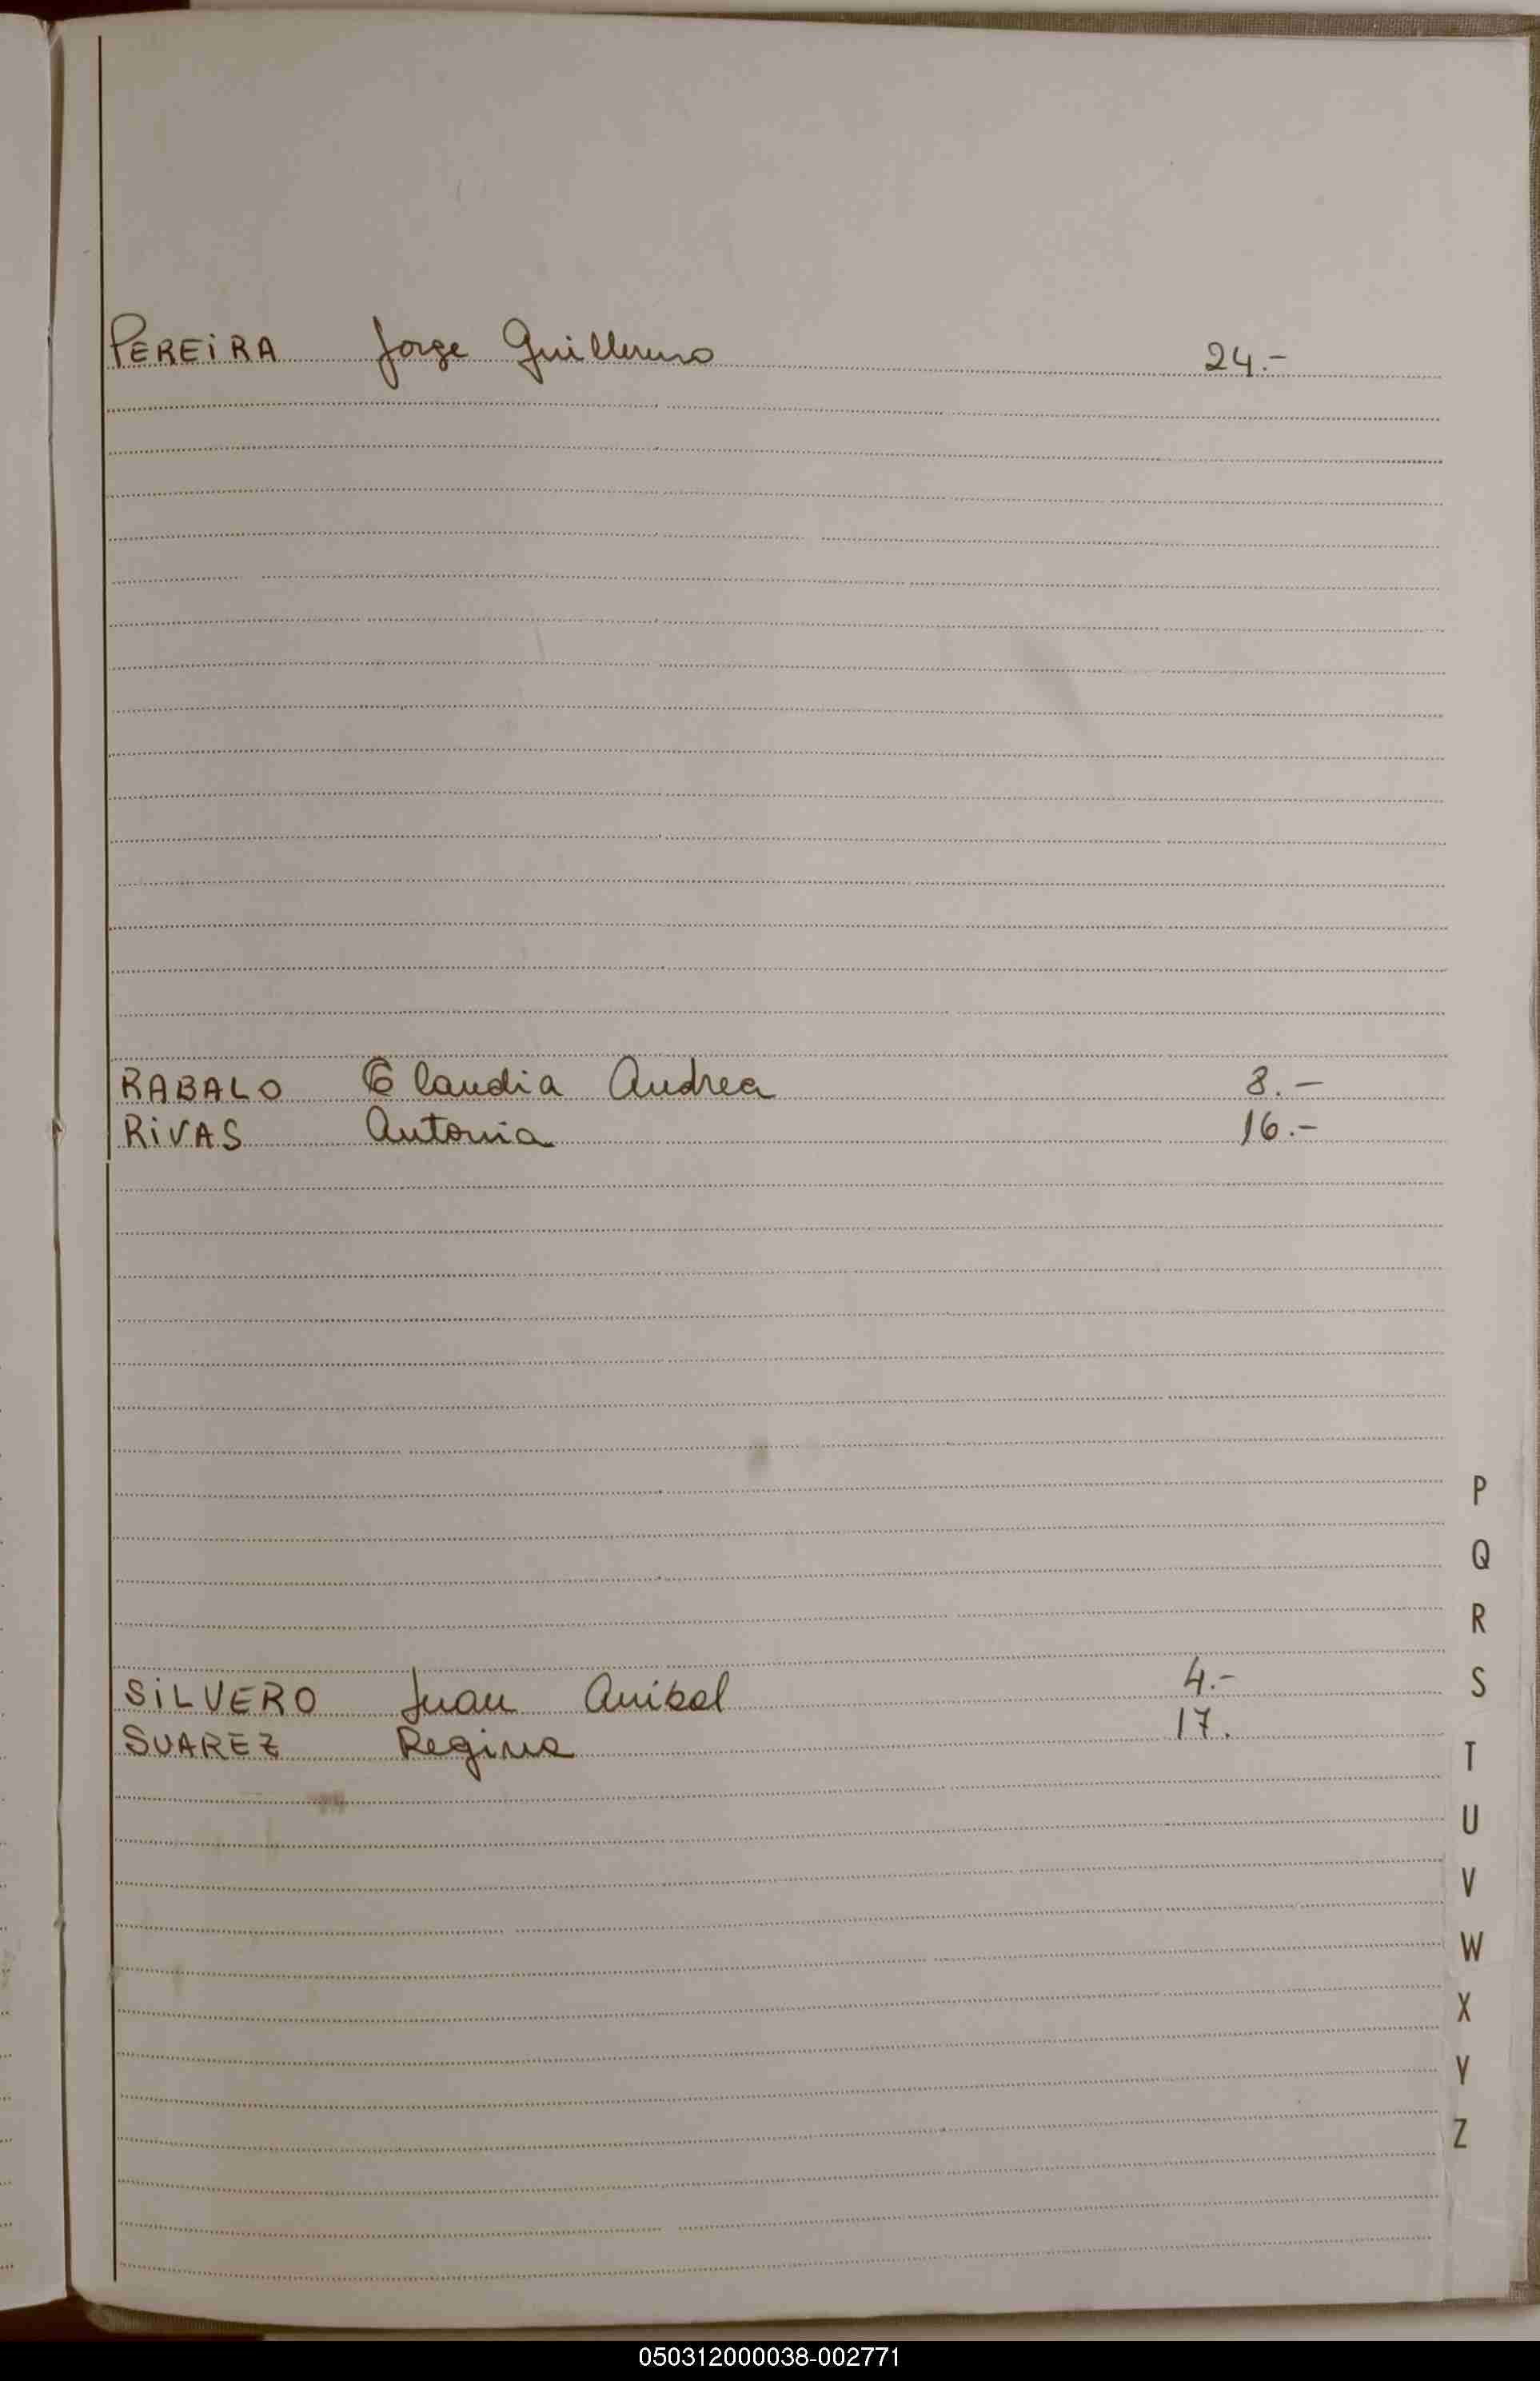 PEREIRA Jorge Guillermo 24.-
RABALO Claudia Andrea 8.-
RIVAS Antonia 16.-
P
Q
R
SILVERO Juan Anibal 4.-
S
SUAREZ Regina 17.
T
U
V
W
X
Y
Z
050312000038-002771